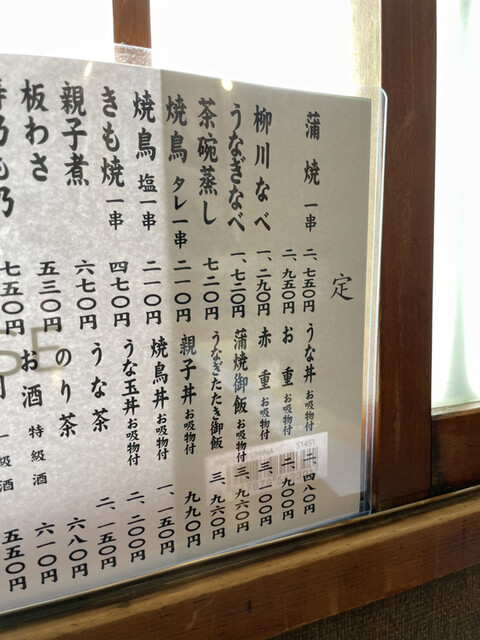 定
蒲焼 一串 二、七五〇円
二、九五〇円
柳川なべ 一、二九〇円
うなぎなべ 一、七二〇円
茶碗蒸し 七二〇円
焼鳥 タレ 一串 二一〇円
焼鳥 塩 一串 二一〇円
きも焼 一串 四七〇円
親子煮 六七〇円
板わさ 五三〇円
七五〇円
うな丼 お吸物付 二、四八〇円
お重 お吸物付 二、九〇〇円
赤重 お吸物付
蒲焼御飯 お吸物付 三、九六〇円
うなぎたたき御飯 三、九六〇円
親子丼 お吸物付 九九〇円
焼鳥丼 お吸物付 一、一五〇円
うな玉丼 お吸物付 二、二〇〇円
うな茶 二、一五〇円
のり茶 六八〇円
お酒 特級酒 六一〇円
一級酒 五五〇円